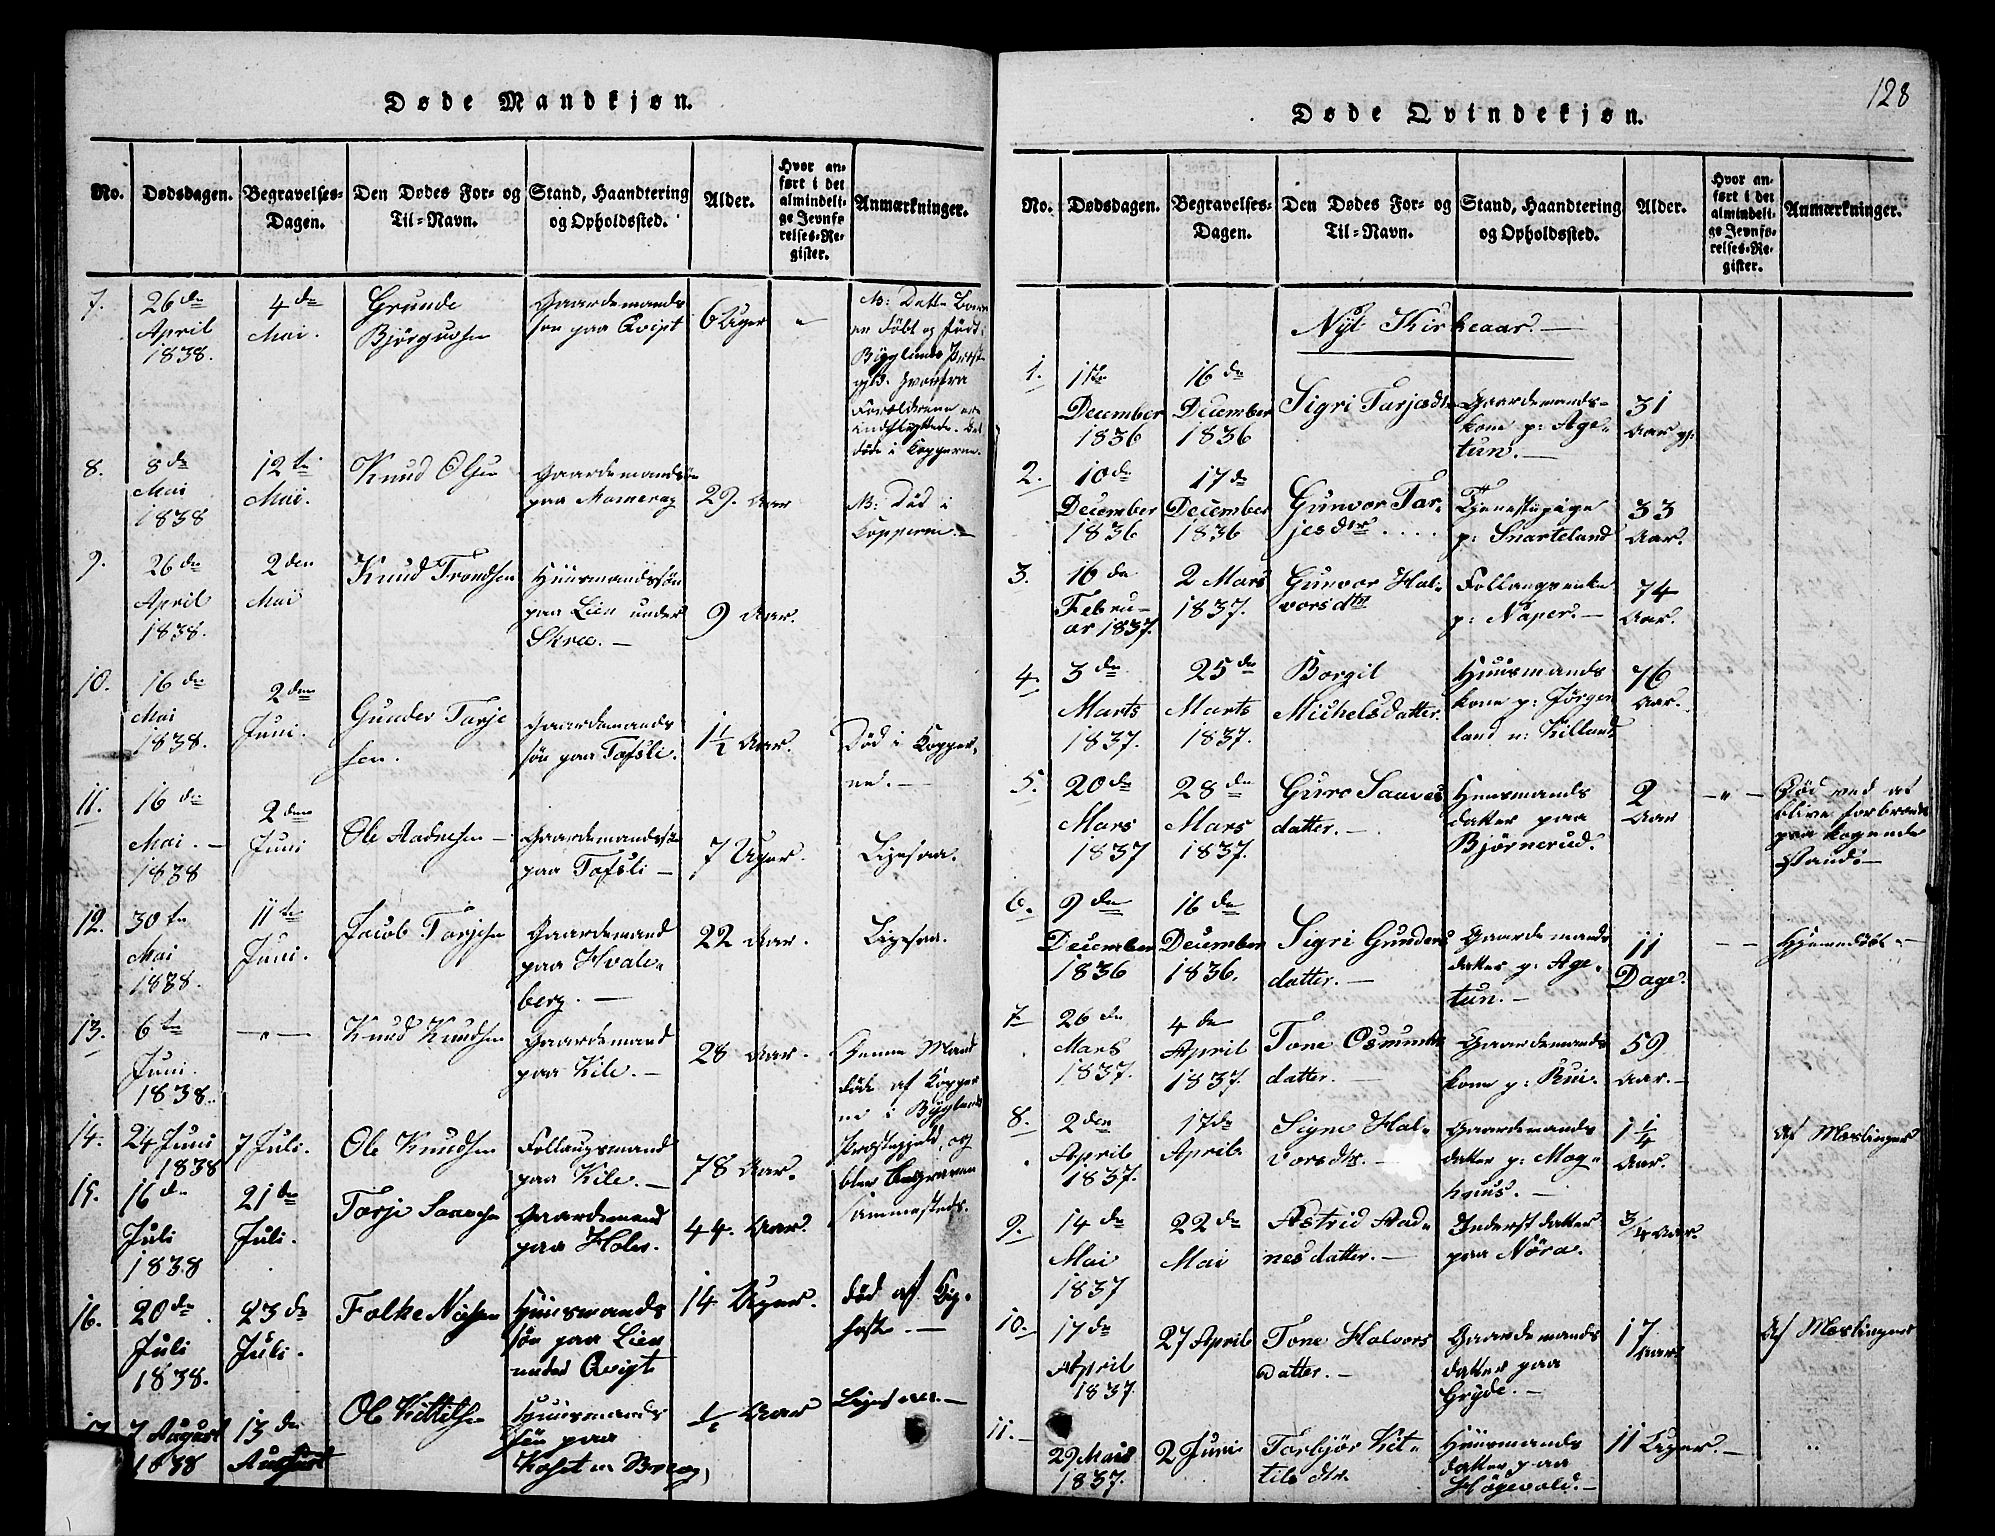 Døde Mandkjøn.
No.
Dødsdagen.
Begravelses-
Dagen.
Den Dødes For- og
Til-Navn.
Stand, Haandtering
og Opholdssted.
Alder.
Hvor an-
ført i det
almindeli-
ge Jevnfø-
relses-Re-
gister.
Anmærkninger.
7.
26de
April
1838.
4de
Mai.
Grunde
Bjørgufsen
Gaardemands
søn paa Qvipt
6 Uger
"
8.
8de
Mai
1838
12te
Mai.
Knud Olsen
Gaardemandsøn
paa
29. Aar
NB: Død i
Kopperne.
9.
26de
April
1838.
2den
Mai
Knud Trondsen
Huusmandssøn
paa Lien under
Skree.
9 Aar.
10.
16de
Mai
1838.
2den
Juni.
Gunder Tarje
sen.
Gaardemands
søn paa Tofsli.
1½ Aar.
Død i Kopper-
ne.
11.
16de
Mai.
1838
2den
Juni
Ole Aadnesen
Gaardemandssøn
paa Tofsli
7 Uger.
Ligesaa.
12.
30te
Mai
1838.
11te
Juni.
Jacob Tarjesen
Gaardemand
paa Hvale-
berg.
22 Aar.
Ligesaa.
13.
6te
Juni
1838.
"
Knud Knudsen
Gaardemand
paa Kile.
28 Aar.
Denne Mand
døde af Kopper
ne i Byglands
Præstegjeld, og
blev begraven
sammesteds.
14.
24 Juni
1838
7 Juli.
Ole Knudsen
Follaugsmand
paa Kile.
78 Aar.
15.
16de
Juli
1838
21de
Juli.
Tarje Saavesen
Gaardemand
paa Holen.
44 Aar.
16.
20de
Juli
1838.
23de
Juli.
Folke Nielsen
Huusmands
søn paa Lien
under Qvipt
14 Uger.
død af Kig-
hoste.
17
7 August
1838
13de
August
Ole Kittelsen
Huusmands
søn paa
½ Aar
Ligesaa.
128
Døde Qvindekjøn.
No.
Dødsdagen.
Begravelses-
Dagen.
Den Dødes For- og
Til-Navn.
Stand, Haandtering
og Opholdssted.
Alder.
Hvor an-
ført i det
almindeli-
ge Jevnfø-
relses-Re-
gister.
Anmærkninger.
Nyt Kirkeaar.
1.
11te
December
1836
16de
December
1836
Sigri Tarjesdtr
Gaardemands-
kone p: Age-
tun.
31
Aar
2.
10de
December
1836
17de
December
1836
Gunvor Tar-
jesdtr
Tjenestepige
p: Snarteland
33
Aar.
3.
16de
Febru-
ar 1837.
2 Mars
1837.
Gunvor Hal-
vorsdtr
Follaugsenke
p: Naper.
74
Aar.
4.
3de
Marts
1837.
25de
Marts
1837.
Borgil
Michelsdatter.
Huusmands
kone p: Jørgen
land u: Killand
76
Aar.
5.
20de
Mars
1837
28de
Mars
1837.
Guro Saaves
datter.
Huusmands
datter paa
Bjørnerud.
2
Aar
"
Død ved at
blive forbrændt
paa kogende
Vand.
6.
9de
December
1836
16de
December
1836.
Sigri Gunders
datter.
Gaardemands
datter p: Age-
tun.
11
Dage.
Hjemmedøbt.
7
26de
Mars
1837.
4de
April
1837.
Tone Osmunds
datter.
Gaardemands
kone p: Rui.
59
Aar.
8.
2den
April
1837.
17de
April.
Signe Hal-
vorsdtr.
Gaardemands
datter p: Mog-
huus.
1¼
Aar.
Af Meslinger
9.
14de
Mai
1837
22de
Mai
Astrid Aad-
nesdatter.
Inderst datter
paa Nøra.
3/4 Aar.
10.
17de
April
1837.
27 April
Tone Halvors
datter.
Gaardemands
datter paa
Gryde.
17
Aar
Af Meslinger
11.
29 Mai
1837.
2 Juni
Torbjør Kit-
tilsdtr.
Huusmands
datter paa
Høgevold.
11 Uger.
"